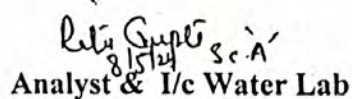 Ritu Gupta Sc. 'A'
8/5/24
Analyst & I/c Water Lab